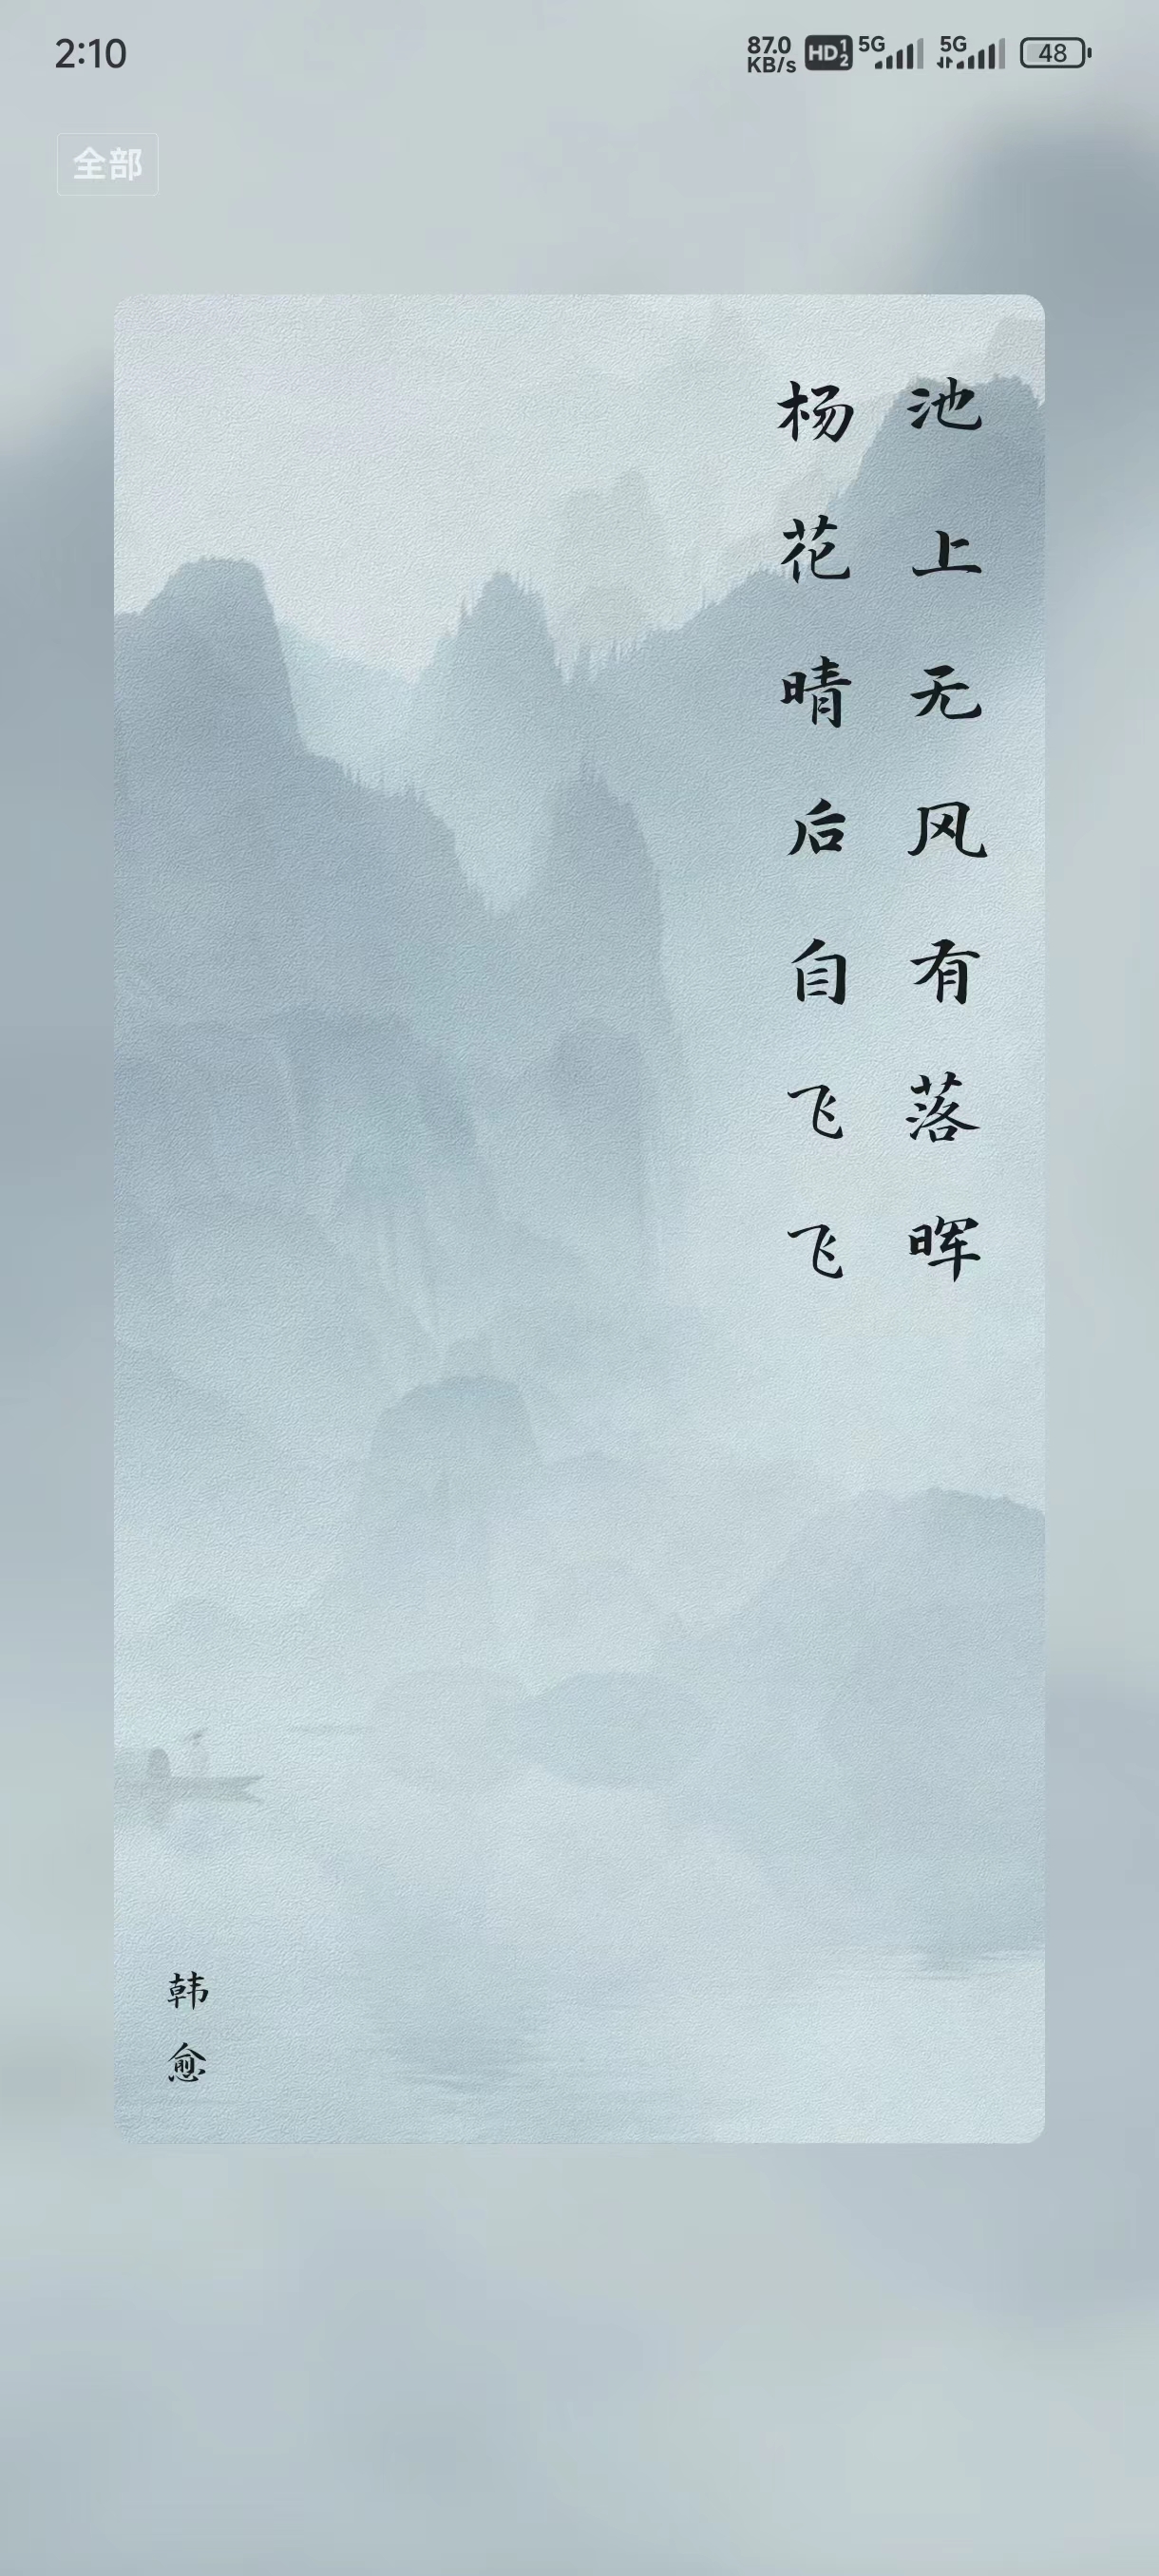 2:10
87.0 KB/s HD 1 2 5G 5G 48
全部
池上无风有落晖
杨花晴后自飞飞
韩愈